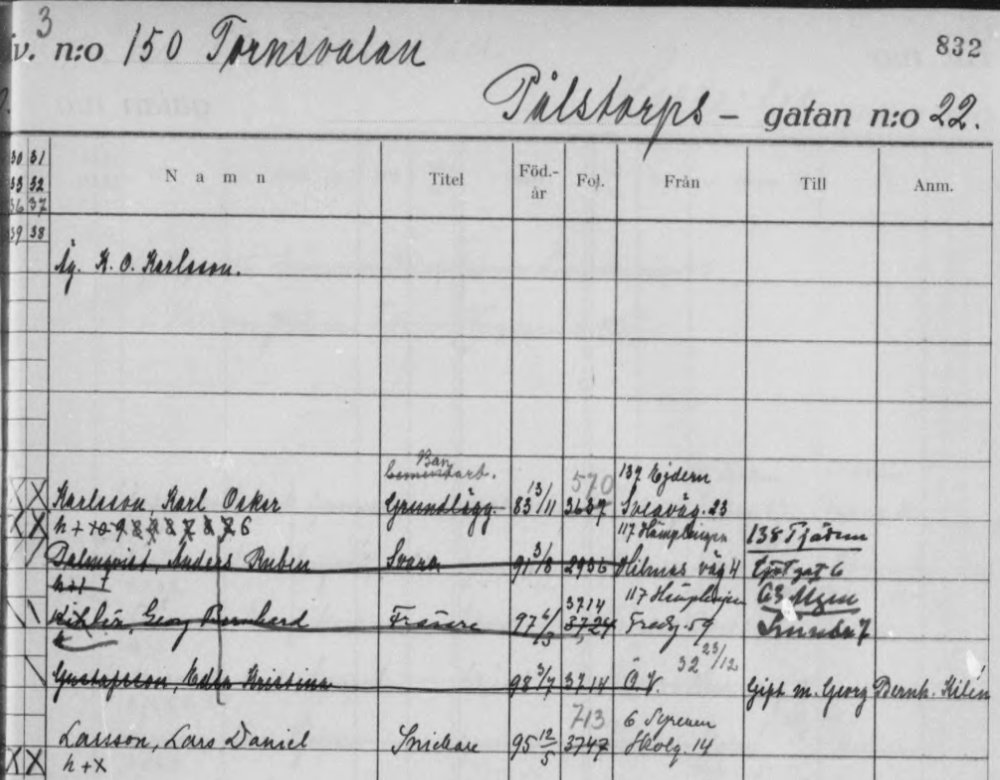 3
v. n:o 150 Tornsvalan
832
Pålstorps - gatan n:o 22.
30 31
33 32
36 37
39 38
Namn Titel Föd.-år Fol. Från Till Anm.
Äg. K. O. Karlsson.
Ban
Cementarb. 570 137 Ejdern
X X Karlsson, Karl Oskar Grundlägg. 83 13/11 3687 Sveaväg. 23
X X h + 6 117 Hämplingen 138 Tjädern
Dalmqvist, Anders Ruben Svarv 91 3/8 2936 Hilmas väg 4 6
h+1 3714 117 Hämplingen 63
Georg Bernhard Fräsare 97 6/3 3724 59 7
32 23/12
Gustafsson, Edla Kristina 98 3/7 3714 Ö.V. Gift m. Georg Bernh. Kilén
713 6 Syrenen
Larsson, Lars Daniel Snickare 95 12/5 3747 Skolg. 14
X X h+x